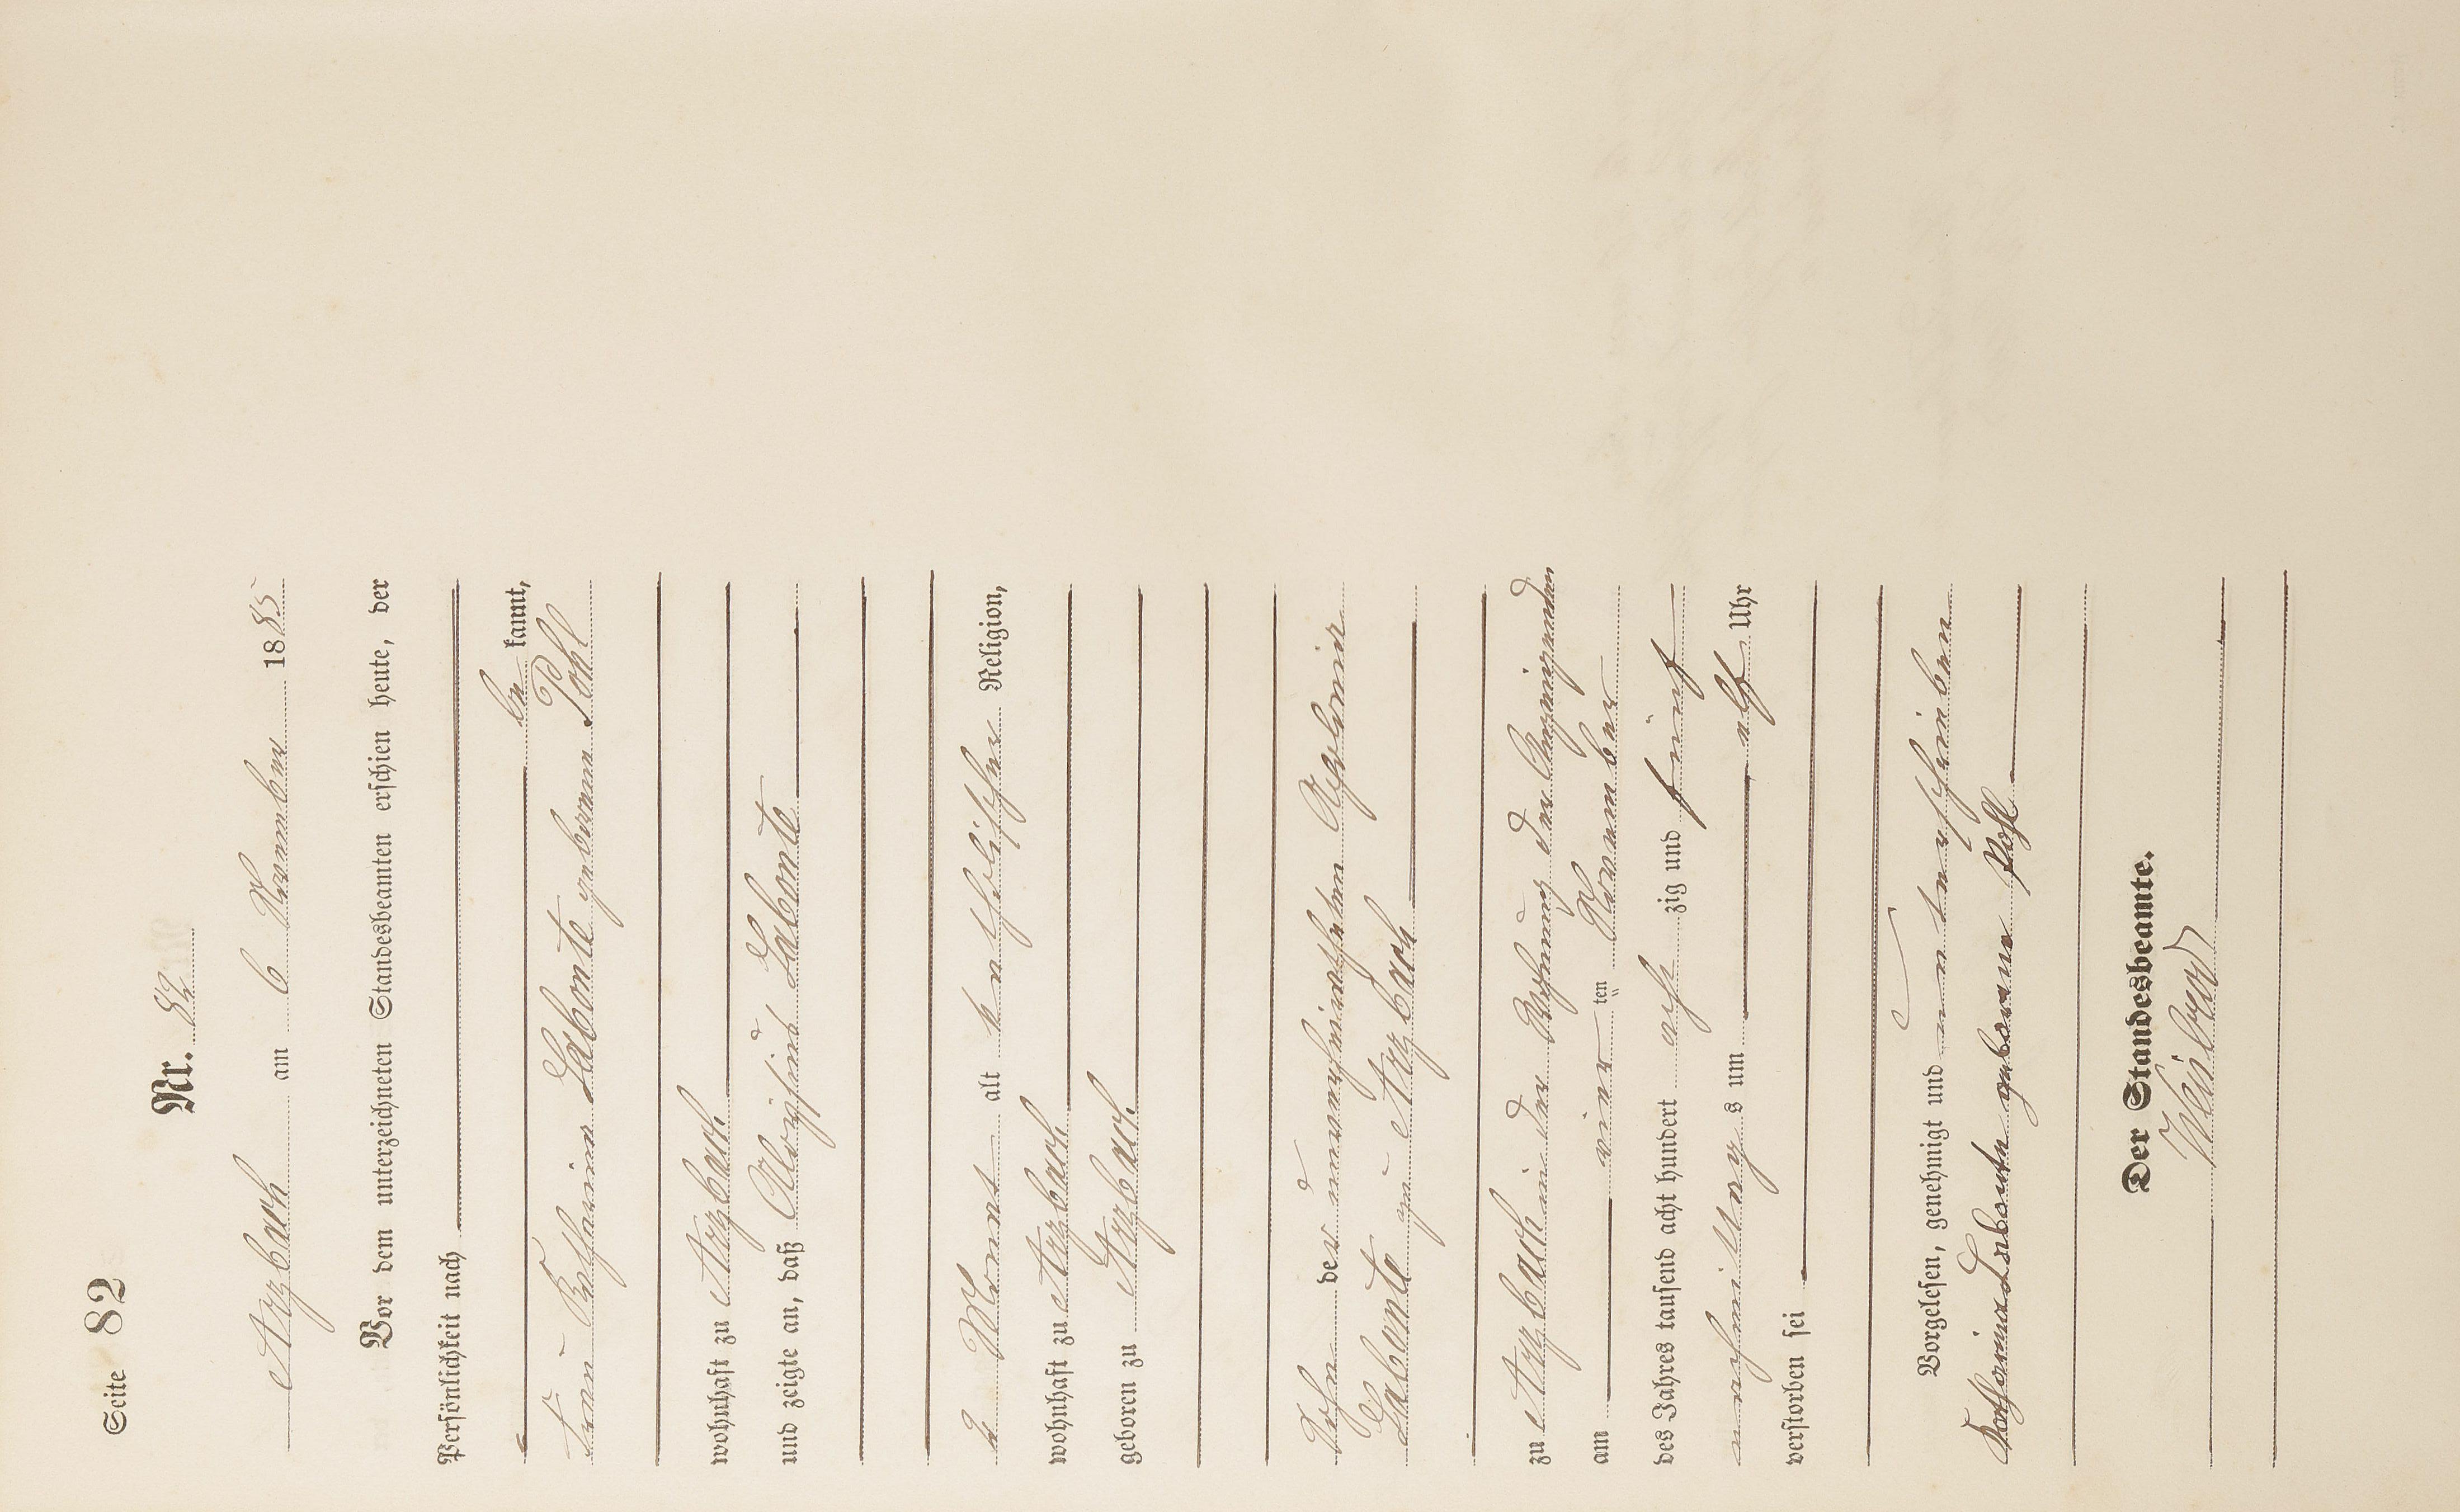 Seite 82
Nr. 82
Arzbach am 6 November 1885
Vor dem unterzeichneten Standesbeamten erschien heute, der
Persönlichkeit nach
be kannt,
Frau Katharina Labonte geborene Pohl
wohnhaft zu Arzbach
und zeigte an, daß Labonte
2 Monat alt katholischer Religion,
wohnhaft zu Arzbach
geboren zu Arzbach
Sohn der unverheiratheten
Labonte zu Arzbach
zu Arzbach in der Wohnung der Anzeigenden
am vier ten November
des Jahres tausend acht hundert acht zig und fünf
nachmittag s um elf Uhr
verstorben sei
Vorgelesen, genehmigt und unterschrieben
Katharina Labonte geborene Pohl
Der Standesbeamte.